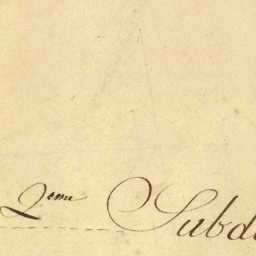 2eme Subd